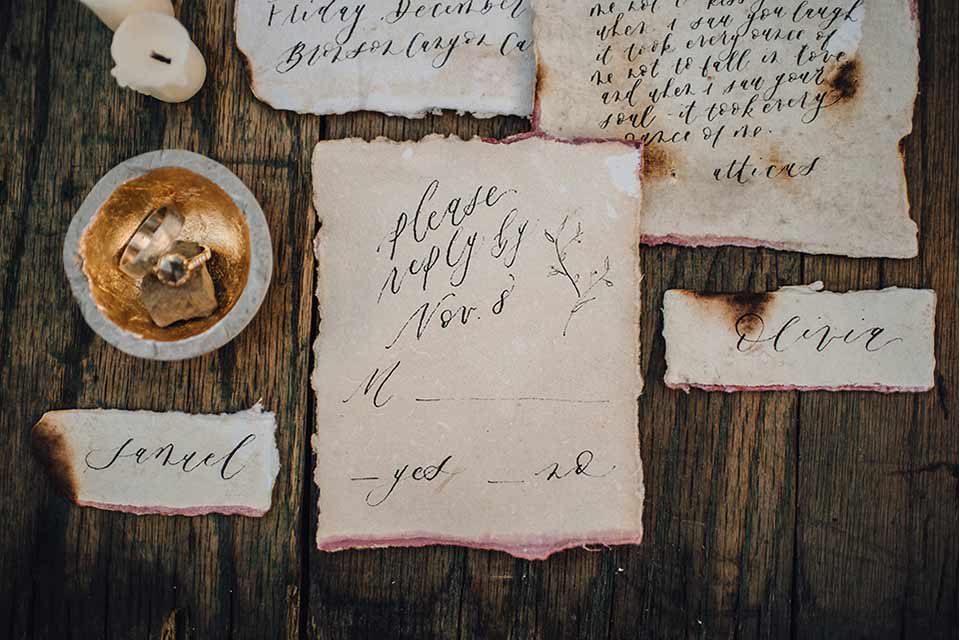 Friday December
Bronson Canyon Ca
me not to kiss
when i saw you laugh
it took every ounce of
me not to fall in love
and when i saw your
soul - it took every
ounce of me.
atticus
please
reply by
Nov. 8
M
yes no
Olivia
Samuel